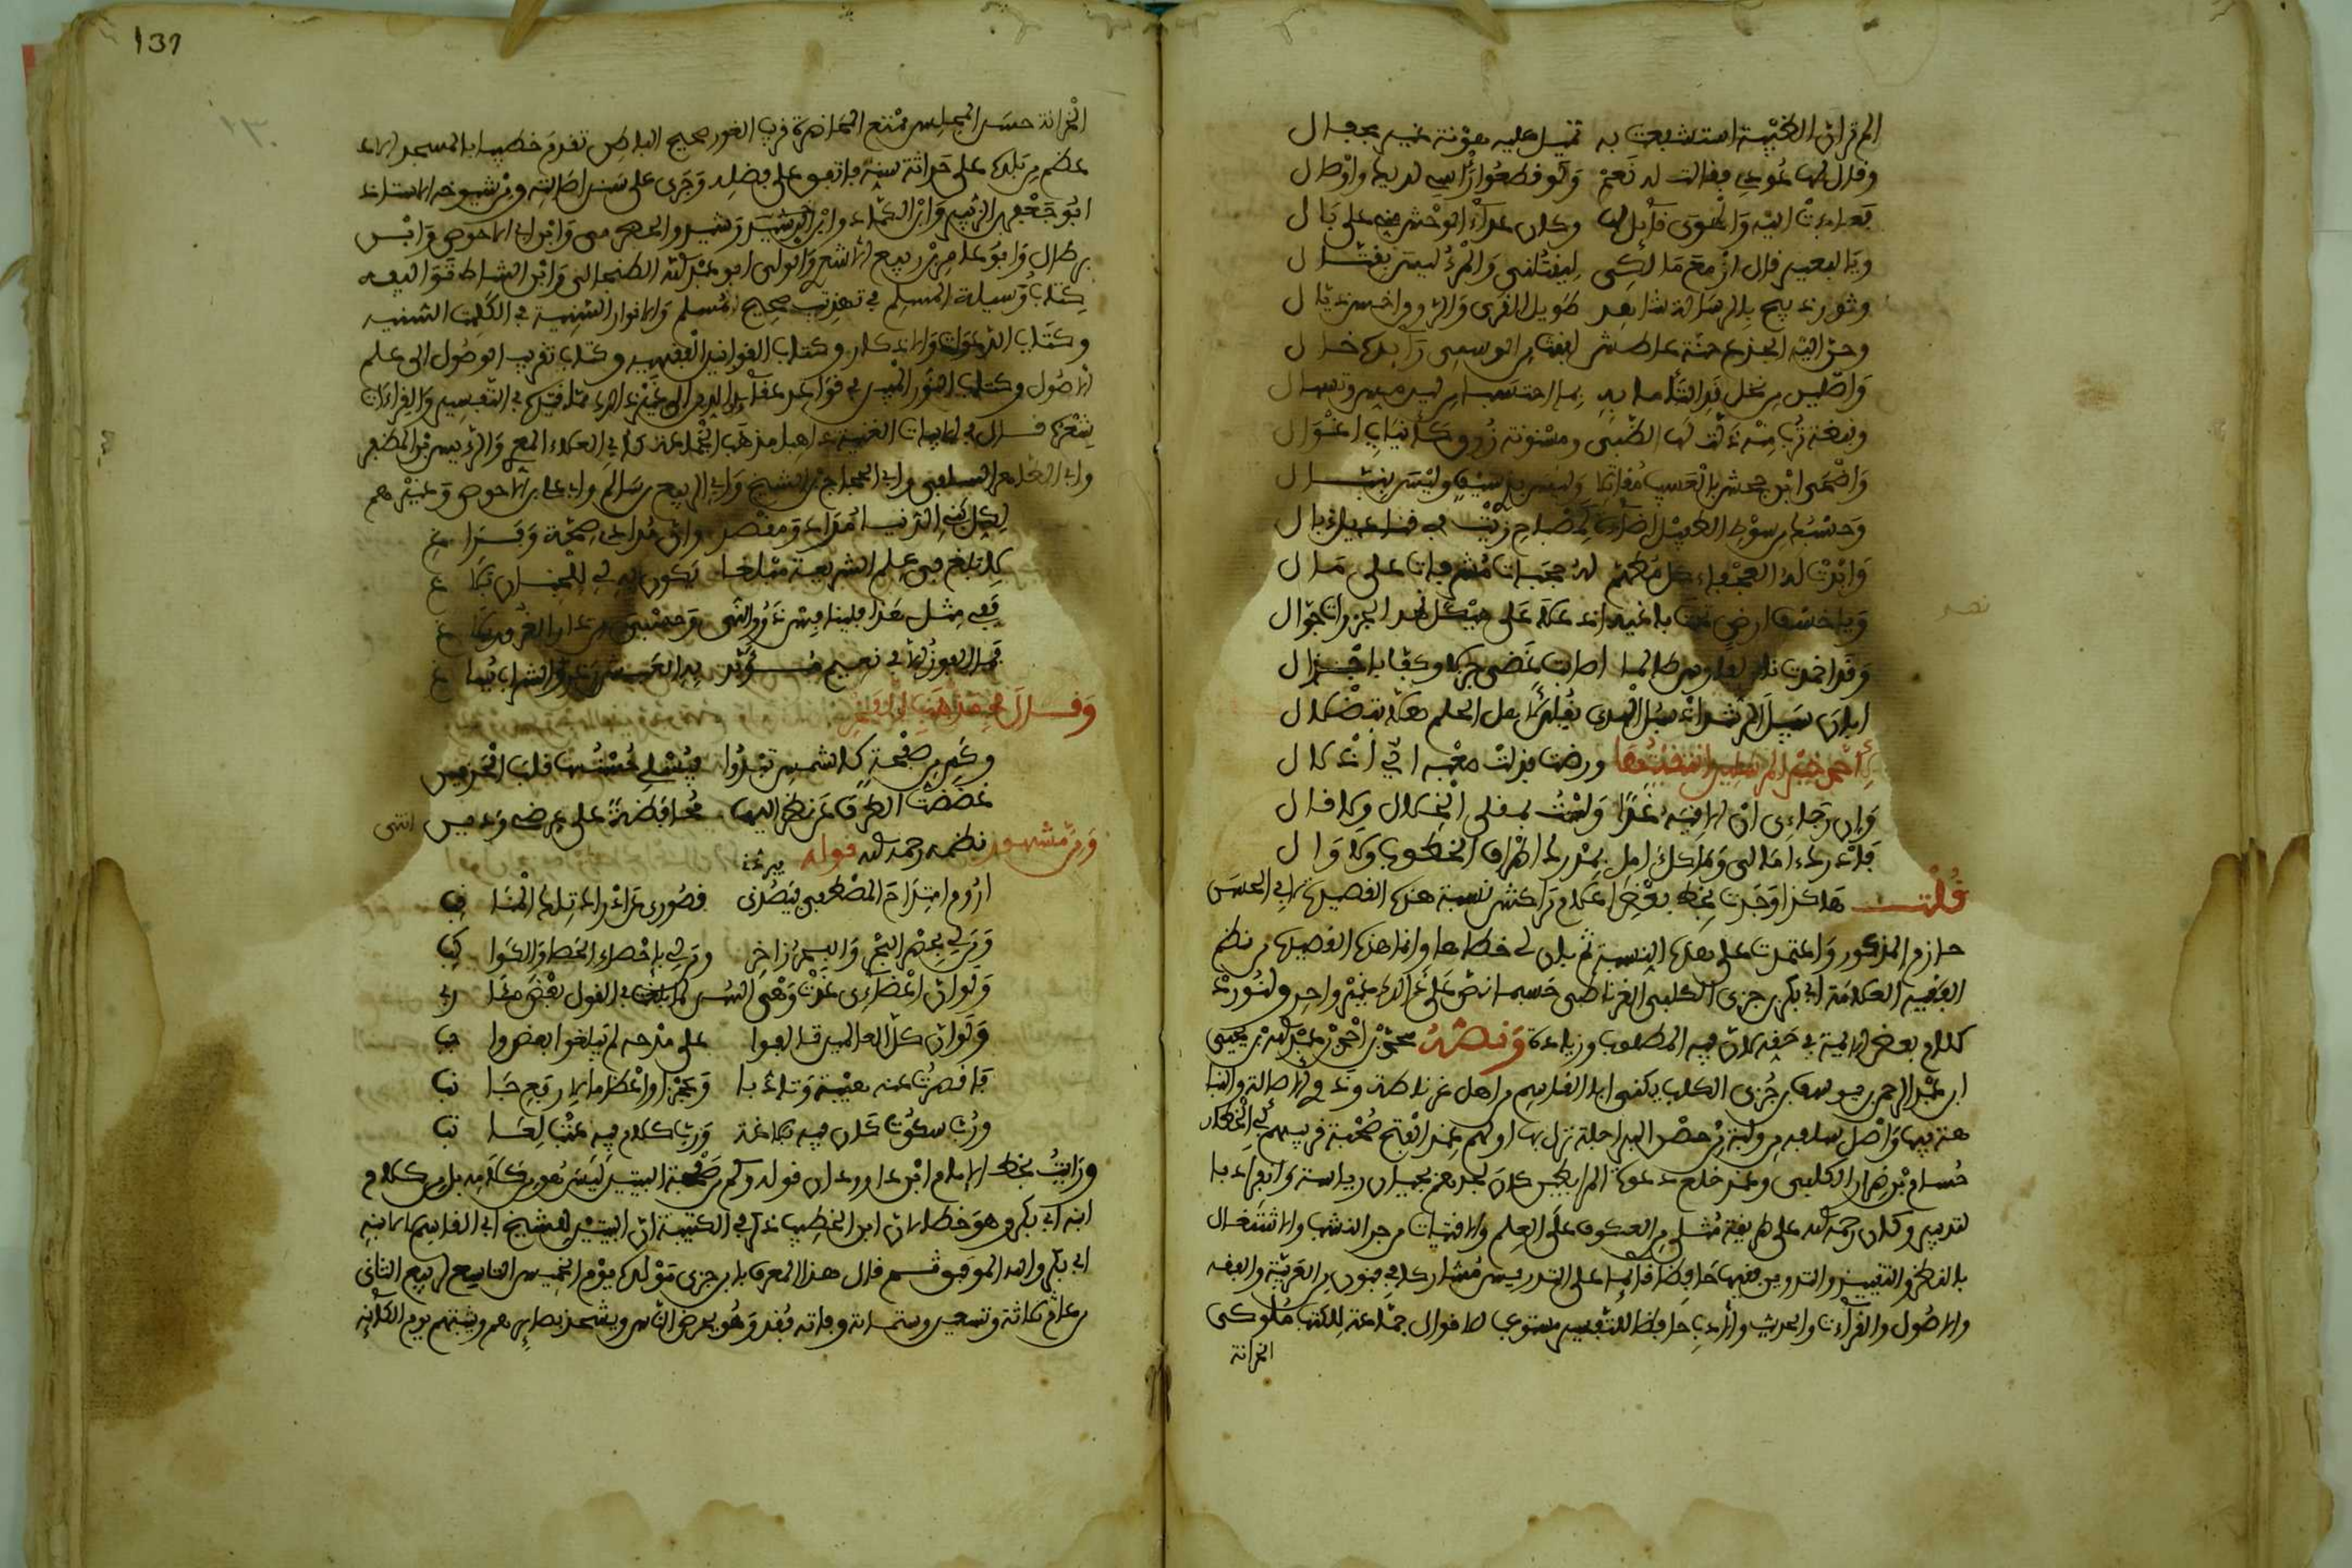 ألم تر أن الظبية استشفعت به تميل عليه هونة غير مجفال
وقال لها عودي فقالت له نعم ولو قطعوا رأسي لديه وأوصال
فعادت إليه والهوى قائل لها وكان عداء الوحش مني على بال
ويا لبعير قال أزمع مالكي ليقتلني والمرء ليس بقتال
وثور ذبيح بالرسالة شاهد طويل القرى والروق أخنس ذيال
وحن إليه الجذع حنة عاطش لغيث من الوسمي رائده خال
وأصلين من نخل قد التأما له بما احتسبا من لين مس وتسهال
وقبضة ترب منه ذلت لها الظبى ومسنونة زرق كأنياب أغوال
وأضحى ابن جحش بالعسيب مقاتلا وليس بذي سيف وليس بنبال
وحسبك من سوط الطفيل إضاءة كمصباح زيت في قناديل ذبال
وبذت له العجفاء كل مطهم له حجبات مشرفات على الفال
ويا خسف أرض تحت باغيه إذ علا على هيكل نهد الجزارة جوال
وقد أخمدت نار لفارس طالما أصابت غضى جزلا وكفت بأجذال
أبان سبيل الرشد إذ سبل الهدى يقلن لأهل الحلم ضلا بتضلال
لأحمد خير العالمين انتقيتها ورضت فذلت صعبة أي إذلال
وإن رجائي أن ألاقيه غدا ولست بمقلي الخلال ولا قال
فأدرك آمالي وما كل آمل بمدرك أطراف الخطوب ولا وال
قلت هاكذا وجدت بخط بعض الأعلام بمراكش نسبة هذه القصيدة لأبي الحسن
حازم المذكور واعتمدت على هذه النسبة ثم بان لي خطأها وإنما هذه القصيدة من نظم
الفقيه العلامة أبي بكر بن جزي الكلبي الغرناطي حسبما نص على ذلك غير واحد ولنورد
كلام بعض الأئمة في حقه لأن فيه المطلوب وزيادة ونصه محمد بن أحمد بن عبد الله بن يحيى
ابن عبد الرحمن بن يوسف بن جزي الكلبي يكنى أبا القاسم من أهل غرناطة وذوي الأصالة والنبا
هة فيها وأصل سلفه من ولبة من حصن البراجلة نزل بها أولهم عند الفتح صحبة قريبهم أبي الخطار
حسام بن ضرار الكلبي وعند خلع دعوة المرابطين كان لجدهم بجيان رياسة وانفراد با
لتدبير وكان رحمه الله على طريقة مثلى من العكوف على العلم والاقتيات من حر النشب والاشتغال
بالنظر والتقييد والتدوين فقيها حافظا قائما على التدريس مشاركا في فنون من العربية والفقه
والأصول والقراءات والحديث والأدب حافظا للتفسير مستوعبا للأقوال جماعة للكتب ملوكي
الخزانة
137
الخزانة حسن المجلس ممتع المحاضرة قريب الغور صحيح الباطن تقدم خطيبا بالمسجد الأ
عظم من بلده على حداثة سنه فاتفق على فضله وجرى على سنن أصالته ومن شيوخه الأستاذ
أبو جعفر بن الزبير وابن الكماد وابن رشيد والحضرمي وابن أبي الأحوص وابن
برطال وأبو عامر بن ربيع الأشعري والولي أبو عبد الله الطنجالي وابن الشاط تواليفه
كتاب وسيلة المسلم في تهذيب صحيح مسلم والأنوار السنية في الكلمات السنية
وكتاب الدعوات والأذكار وكتاب القوانين الفقهية وكتاب تقريب الوصول إلى علم
الأصول وكتاب النور المبين في قواعد عقائد الدين إلى غير ذلك مما قيده في التفسير والقراءات
شعره قال في الأبيات الغينية ذاهبا مذهب الجماعة كأبي العلاء المعري والرئيس بن المظفر
وأبي الطاهر السلفي وأبي الحجاج بن الشيخ وأبي الربيع بن سالم وأبي علي بن أبي الأحوص وغيرهم
لكل بني الدنيا مراد ومقصد وإن مرادي صحة وفراغ
لأبلغ في علم الشريعة مبلغا يكون به لي للجنان بلاغ
ففي مثل هذا فلينافس ذوو النهى وحسبي من دار الغرور بلاغ
فما الفوز إلا في نعيم مؤبد به العيش رغد والشراب يساغ
وقال في مذهب الفخر
وكم من صفحة كالشمس تبدو فيسلي حسنها قلب الحزين
غضضت الطرف عن نظري إليها محافظة على عرضي وديني انتهى
ومن مشهور نظمه رحمه الله قوله
أروم امتداح المصطفى فيصدني قصوري عن إدراك تلك المناقب
ومن لي بحصر البحر والبحر زاخر ومن لي بإحصاء الحصا والكواكب
ولو أن أعضائي غدت وهي ألسن لما بلغت في القول بعض مآربي
ولو أن كل العالمين تألفوا على مدحه لم يبلغوا بعض واجب
فأقصرت عنه هيبة وتأدبا وعجزا وإعظاما لأرفع جانب
ورب سكوت كان فيه بلاغة ورب كلام فيه عتب لعاتب
ورأيت بخط الإمام ابن داود أن قوله وكم من صفحة البيتين ليس هو من كلامه بل من كلام
ابنه أبي بكر وهو خطأ لأن ابن الخطيب ذكر في الكتيبة أن البيتين للشيخ أبي القاسم لا لابنه
أبي بكر والله الموفق ثم قال هذا المعرف بابن جزي مولده يوم الخميس التاسع لربيع الثاني
من عام ثلاثة وتسعين وستمائة ووفاته فقد وهو يحرض الناس ويشحذ بصائرهم ويثبتهم يوم الكائنة